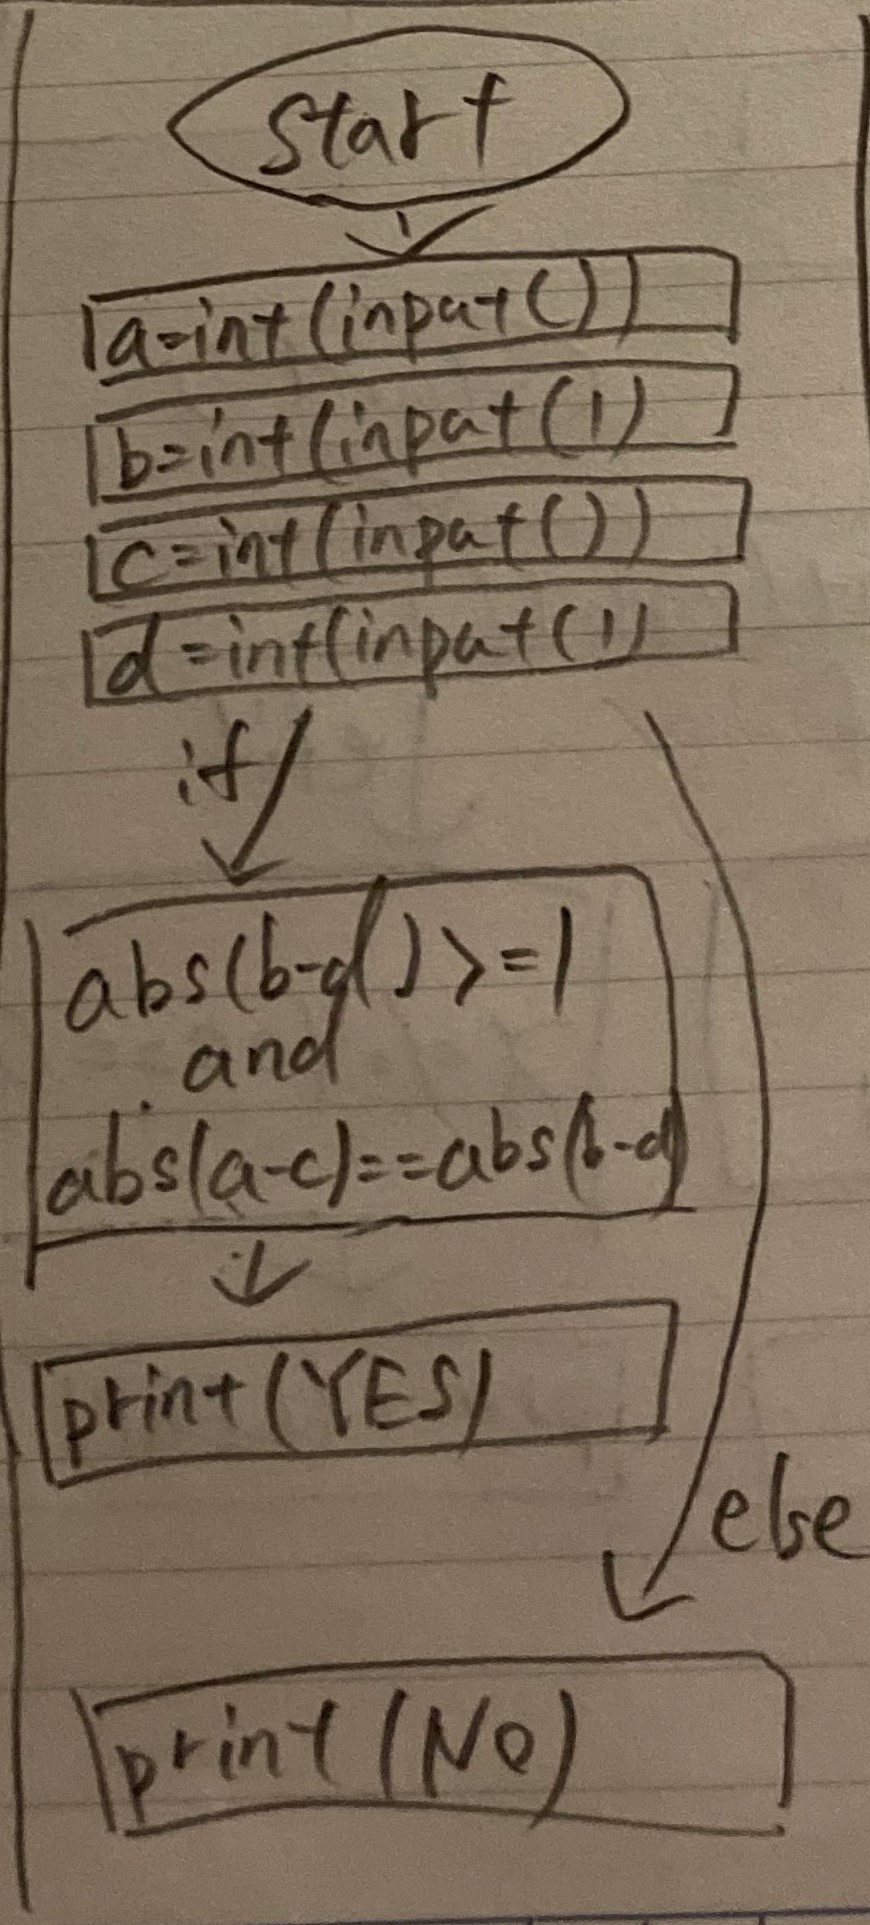 start
a=int(input())
b=int(input())
c=int(input())
d=int(input())
if
abs(b-d)>=1
and
abs(a-c)==abs(b-d)
print(YES)
else
print(No)